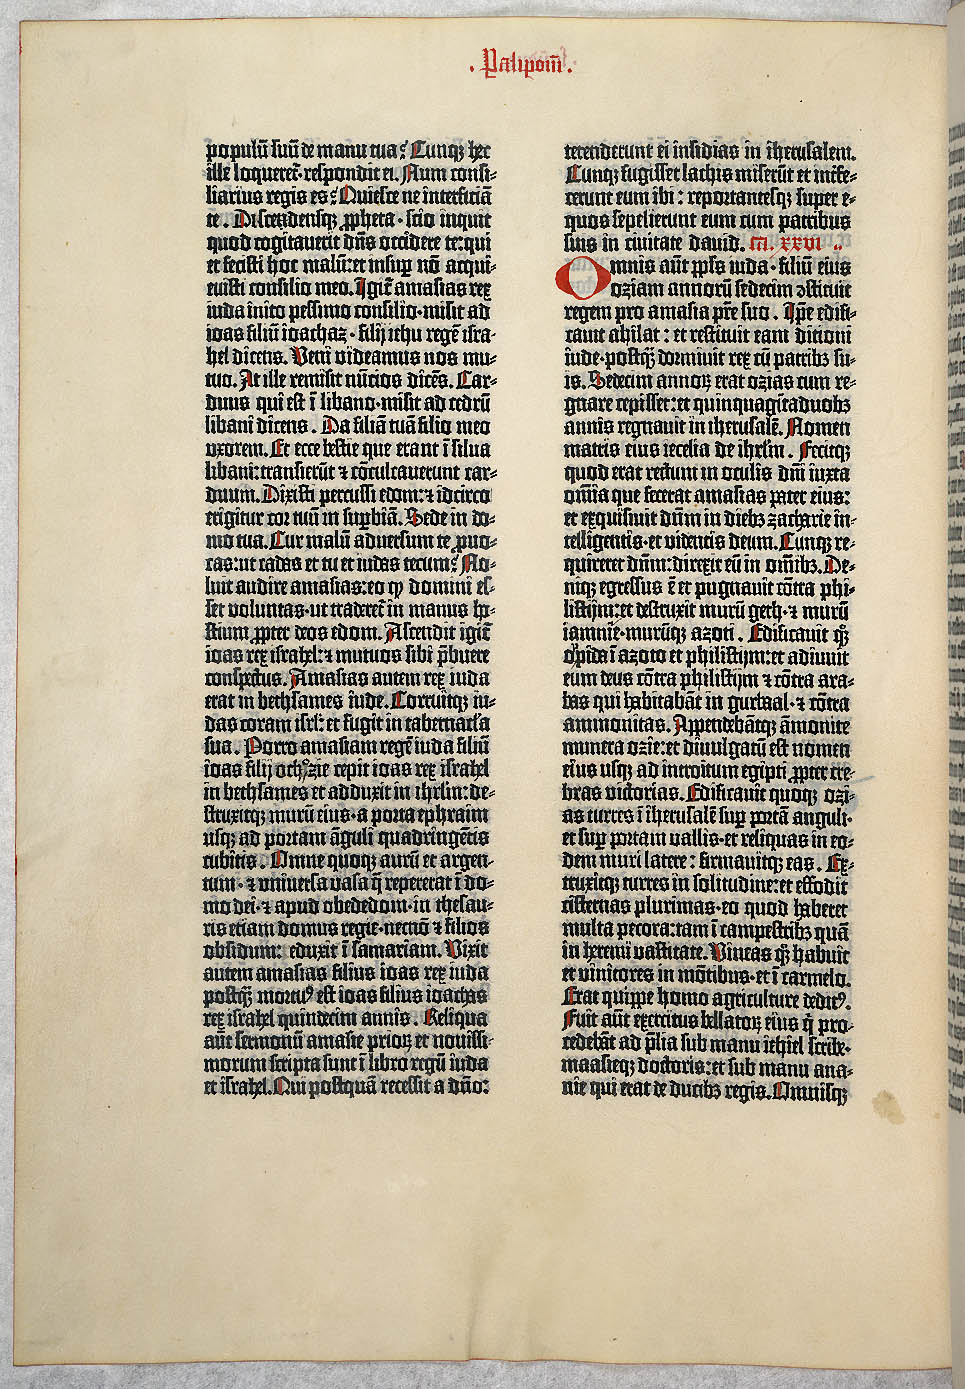 . Palipom̄.
populū suū de manu tua? Cunqꝫ hec
ille loqueret᷑· respondit ei. Num consi-
liarius regis es? Quiesce ne interficiā
te. Discedensqꝫ ꝓpheta · scio inquit
quod cogitauerit dn̄s occidere te: qui
et fecisti hoc malū: et insuꝑ nō acqui-
euisti consilio meo. Igit᷑ amasias rex
iuda inito pessimo consilio· misit ad
ioas filiū ioachaz · filij iehu regē isra-
hel dicens. Veni videamus nos mu-
tuo. At ille remisit nūcios dicēs. Car-
duus qui est ī libano· misit ad cedrū
libani dicens. Da filiā tuā filio meo
vxorem. Et ecce bestie que erant ī silua
libani: transierūt ⁊ cōculcauerunt car-
duum. Dixisti percussi edom: ⁊ idcirco
erigitur cor tuū in suꝑbiā. Sede in do-
mo tua. Cur malū aduersum te ꝓuo-
cas: ut cadas et tu et iudas tecum? No-
luit audire amasias: eo ꝙ domini es-
set voluntas· ut traderet᷑ in manus ho-
stium ꝓpter deos edom. Ascendit igit᷑
ioas rex israhel: ⁊ mutuos sibi p̄buere
conspectus. Amasias autem rex iuda
erat in bethsames iude. Corruitqꝫ iu-
das coram isrl: et fugit in tabernacl'a
sua. Porro amasiam regē iuda filiū
ioas filij ochozie cepit ioas rex israhel
in bethsames et adduxit in ihrlm: de-
struxitqꝫ murū eius· a porta ephraim
usqꝫ ad portam āguli quadringētis
cubitis. Omne quoqꝫ aurū et argen-
tum · ⁊ vniuersa vasa q̄ repererat ī do-
mo dei · ⁊ apud obededom· in thesau-
ris etiam domus regie· necnō ⁊ filios
obsidum: eduxit ī samariam. Vixit
autem amasias filius ioas rex iuda
postqꝫ̄ mortuꝰ est ioas filius ioachas
rex israhel quindecim annis. Reliqua
aūt sermonū amasie prioꝝ et nouissi-
morum scripta sunt ī libro regū iuda
et israhel. Qui postquā recessit a dn̄o:
tetenderunt ei insidias in iherusalem.
Cunqꝫ fugisset lachis miserūt et int̄fe-
cerunt eum ibi: reportantesqꝫ super e-
quos sepelierunt eum cum patribus
suis in ciuitate dauid. ca. xxvi
Omnis aūt pp̄ls iuda · filiū eius
oziam annorū sedecim ꝯstituit
regem pro amasia pr̄e suo. Ip̄e edifi-
cauit ahilat: et restituit eam ditioni
iude· postqꝫ̄ dormiuit rex cū patribꝫ su-
is. Sedecim annoꝝ erat ozias cum re-
gnare cepisset: et quinquagītaduobꝫ
annis regnauit in iherusalē. Nomen
matris eius iecelia de ihrlm. Fecitqꝫ
quod erat rectum in oculis dn̄i iuxta
omīa que fecerat amasias pater eius:
et exquisiuit dn̄m in diebꝫ zacharie in-
telligentis· et videntis deum. Cunqꝫ re-
quireret dn̄m: direxit eū in omībꝫ. De-
niqꝫ egressus ē et pugnauit cōtra phi-
listijm: et destruxit murū geth · ⁊ murū
iamnie· murūqꝫ azoti. Edificauit qꝫͦ
opida ī azoto et philistijm: et adiuuit
eum deus cōtra philistijm ⁊ cōtra ara-
bas qui habitabāt in gurbaal· ⁊ cōtra
ammonitas. Appendebātqꝫ āmonite
munera ozie: et diuulgatū est nomen
eius usqꝫ ad introitum egipti ꝓpter cre-
bras victorias. Edificauit quoqꝫ ozi-
as turres ī iherusalē suꝑ portā anguli·
et suꝑ portam vallis· et reliquas in eo-
dem muri latere: firmauitqꝫ eas. Ex-
truxitqꝫ turres in solitudine: et effodit
cisternas plurimas· eo quod haberet
multa pecora: tam ī campestribꝫ quā
in heremi vastitate. Vineas qꝫͦ habuit
et vinitores in mōtibus· et ī carmelo.
Erat quippe homo agriculture deditꝰ.
Fuit aūt exercitus bellatoꝝ eius q̄ pro-
cedebāt ad p̄lia sub manu iehiel scribe·
maasieqꝫ doctoris: et sub manu ana-
nie qui erat de ducibꝫ regis. Omnisqꝫ